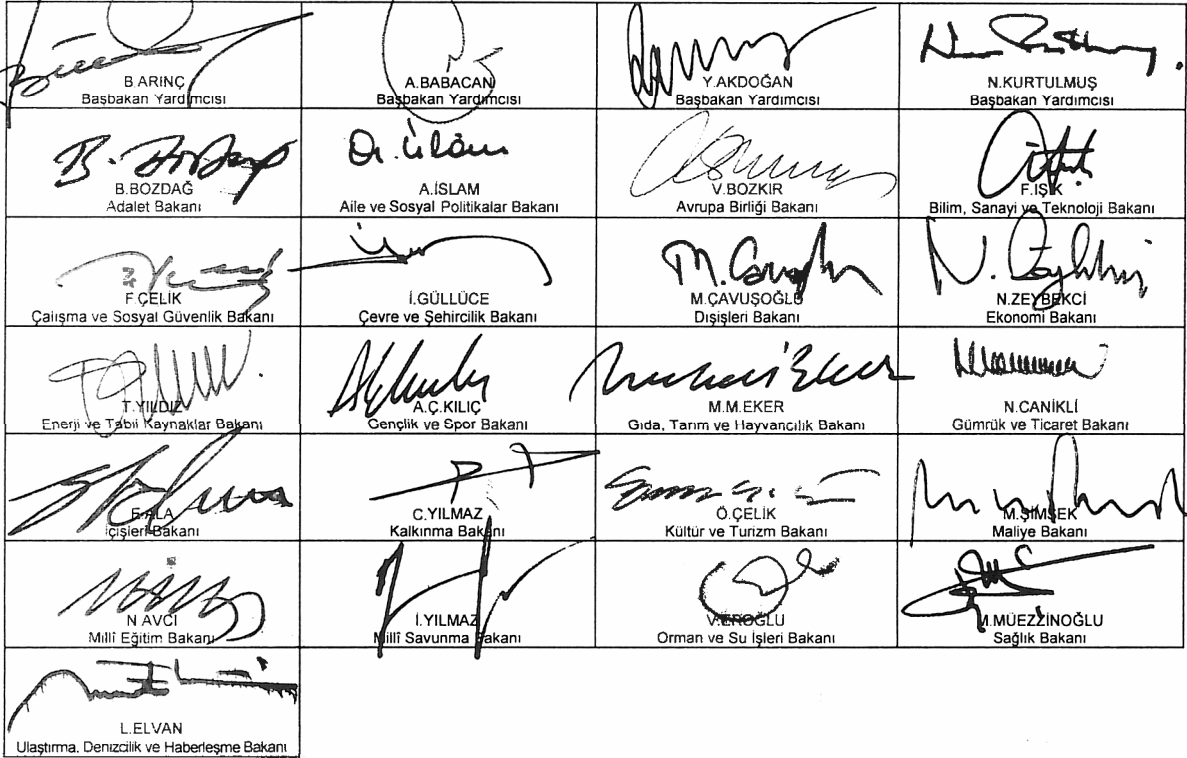 B.ARINÇ
Başbakan Yardımcısı
A.BABACAN
Başbakan Yardımcısı
Y.AKDOĞAN
Başbakan Yardımcısı
N.KURTULMUŞ
Başbakan Yardımcısı
B.BOZDAĞ
Adalet Bakanı
A.İSLAM
Aile ve Sosyal Politikalar Bakanı
V.BOZKIR
Avrupa Birliği Bakanı
F.IŞIK
Bilim, Sanayi ve Teknoloji Bakanı
F.ÇELİK
Çalışma ve Sosyal Güvenlik Bakanı
İ.GÜLLÜCE
Çevre ve Şehircilik Bakanı
M.ÇAVUŞOĞLU
Dışişleri Bakanı
N.ZEYBEKCİ
Ekonomi Bakanı
T.YILDIZ
Enerji ve Tabii Kaynaklar Bakanı
A.Ç.KILIÇ
Gençlik ve Spor Bakanı
M.M.EKER
Gıda, Tarım ve Hayvancılık Bakanı
N.CANİKLİ
Gümrük ve Ticaret Bakanı
E.ALA
İçişleri Bakanı
C.YILMAZ
Kalkınma Bakanı
Ö.ÇELİK
Kültür ve Turizm Bakanı
M.ŞİMŞEK
Maliye Bakanı
N.AVCI
Millî Eğitim Bakanı
İ.YILMAZ
Millî Savunma Bakanı
V.EROĞLU
Orman ve Su İşleri Bakanı
M.MÜEZZİNOĞLU
Sağlık Bakanı
L.ELVAN
Ulaştırma, Denizcilik ve Haberleşme Bakanı